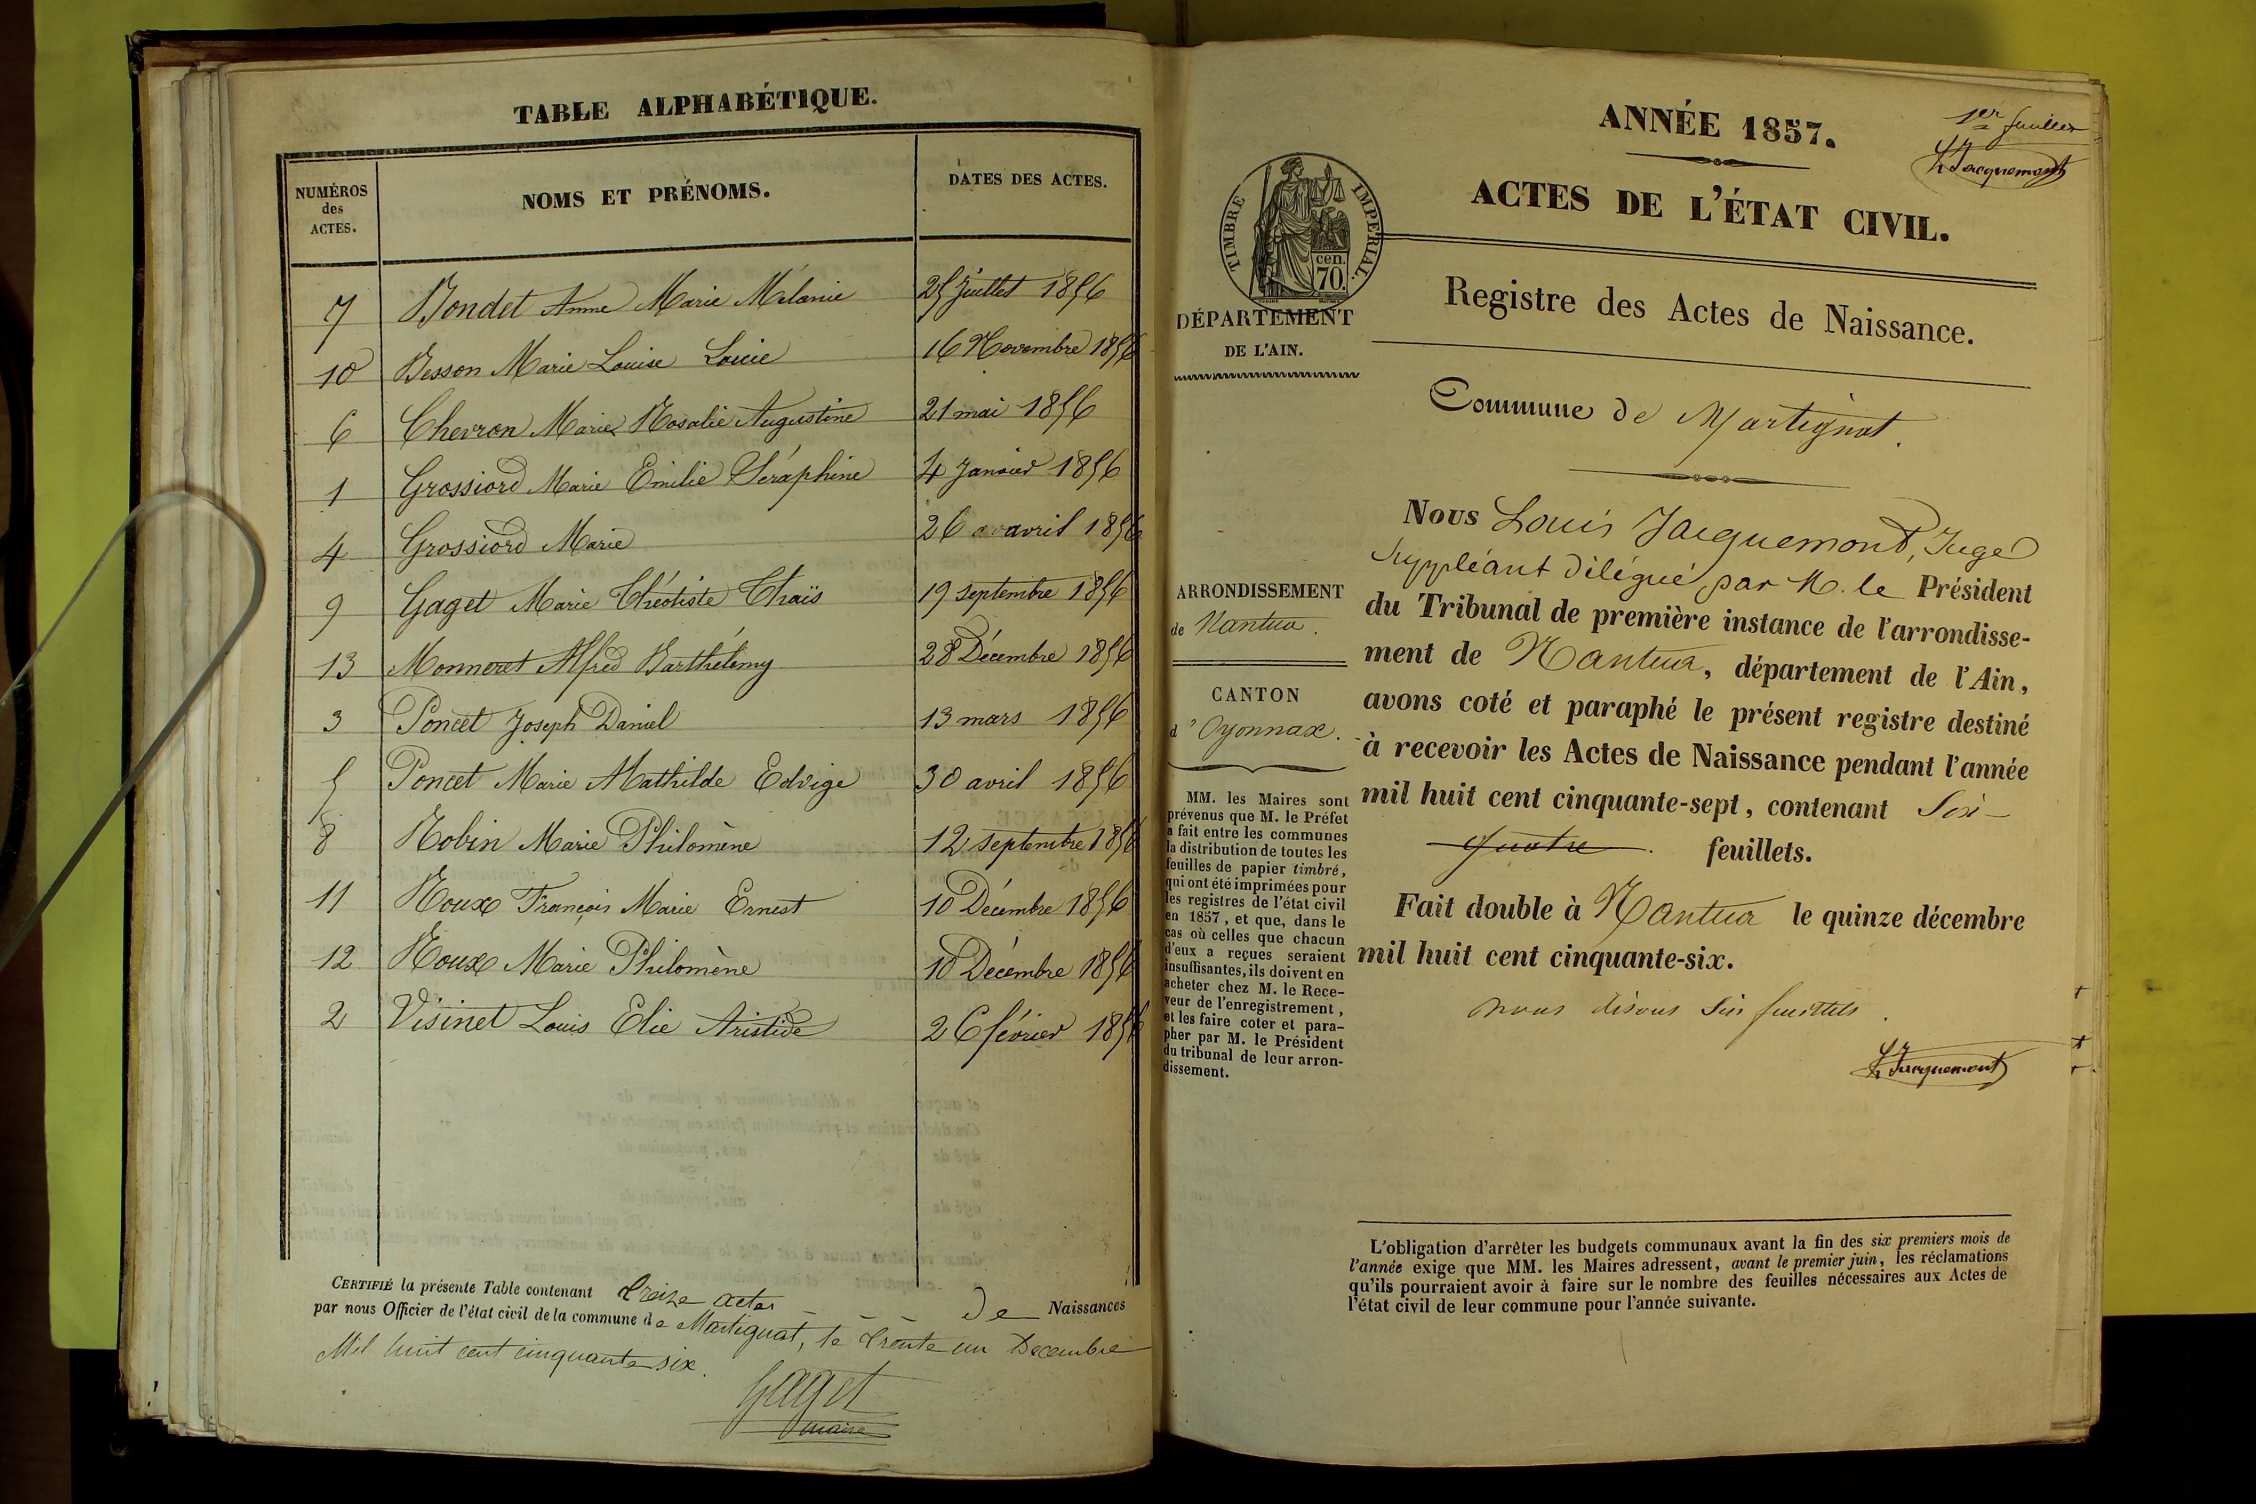 TABLE ALPHABÉTIQUE.
NUMÉROS des ACTES. NOMS ET PRÉNOMS. DATES DES ACTES.
7 Bondet Anne Marie Mélanie 25 Juillet 1856
10 Besson Marie Louise Lucie 16 Novembre 1856
6 Chevron Marie Rosalie Augustine 21 mai 1856
1 Grossiord Marie Emilie Séraphine 4 Janvier 1856
4 Grossiord Marie 26 avril 1856
9 Gaget Marie Théotiste Thaïs 19 septembre 1856
13 Monneret Alfred Barthélemy 28 Décembre 1856
3 Poncet Joseph Daniel 13 mars 1856
5 Poncet Marie Mathilde Edvige 30 avril 1856
8 Robin Marie Philomène 12 septembre 1856
11 Roux François Marie Ernest 10 Décembre 1856
12 Roux Marie Philomène 10 Décembre 1856
2 Visinet Louis Elie Aristide 26 février 1856
CERTIFIÉ la présente Table contenant treize actes de Naissances
par nous Officier de l'état civil de la commune de Martignat, le trente un Decembre
Mil huit cent cinquante six.
Gaget
maire
1er feuillet
L Jacquemont
ANNÉE 1857.
ACTES DE L'ÉTAT CIVIL.
TIMBRE IMPERIAL.
cen.
70.
DÉPARTEMENT
DE L'AIN.
ARRONDISSEMENT
de Nantua.
CANTON
d'Oyonnax.
MM. les Maires sont
prévenus que M. le Préfet
a fait entre les communes
la distribution de toutes les
feuilles de papier timbré,
qui ont été imprimées pour
les registres de l'état civil
en 1857, et que, dans le
cas où celles que chacun
d'eux a reçues seraient
insuffisantes, ils doivent en
acheter chez M. le Rece-
veur de l'enregistrement,
et les faire coter et para-
pher par M. le Président
du tribunal de leur arron-
dissement.
Registre des Actes de Naissance.
Commune de Martignat.
Nous Louis Jacquemont, Juge
Suppléant délégué par M. le Président
du Tribunal de première instance de l'arrondisse-
ment de Nantua, département de l'Ain,
avons coté et paraphé le présent registre destiné
à recevoir les Actes de Naissance pendant l'année
mil huit cent cinquante-sept, contenant Six
quatre feuillets.
Fait double à Nantua le quinze décembre
mil huit cent cinquante-six.
nous disons six feuillets.
L Jacquemont
L'obligation d'arrêter les budgets communaux avant la fin des six premiers mois de
l'année exige que MM. les Maires adressent, avant le premier juin, les réclamations
qu'ils pourraient avoir à faire sur le nombre des feuilles nécessaires aux Actes de
l'état civil de leur commune pour l'année suivante.